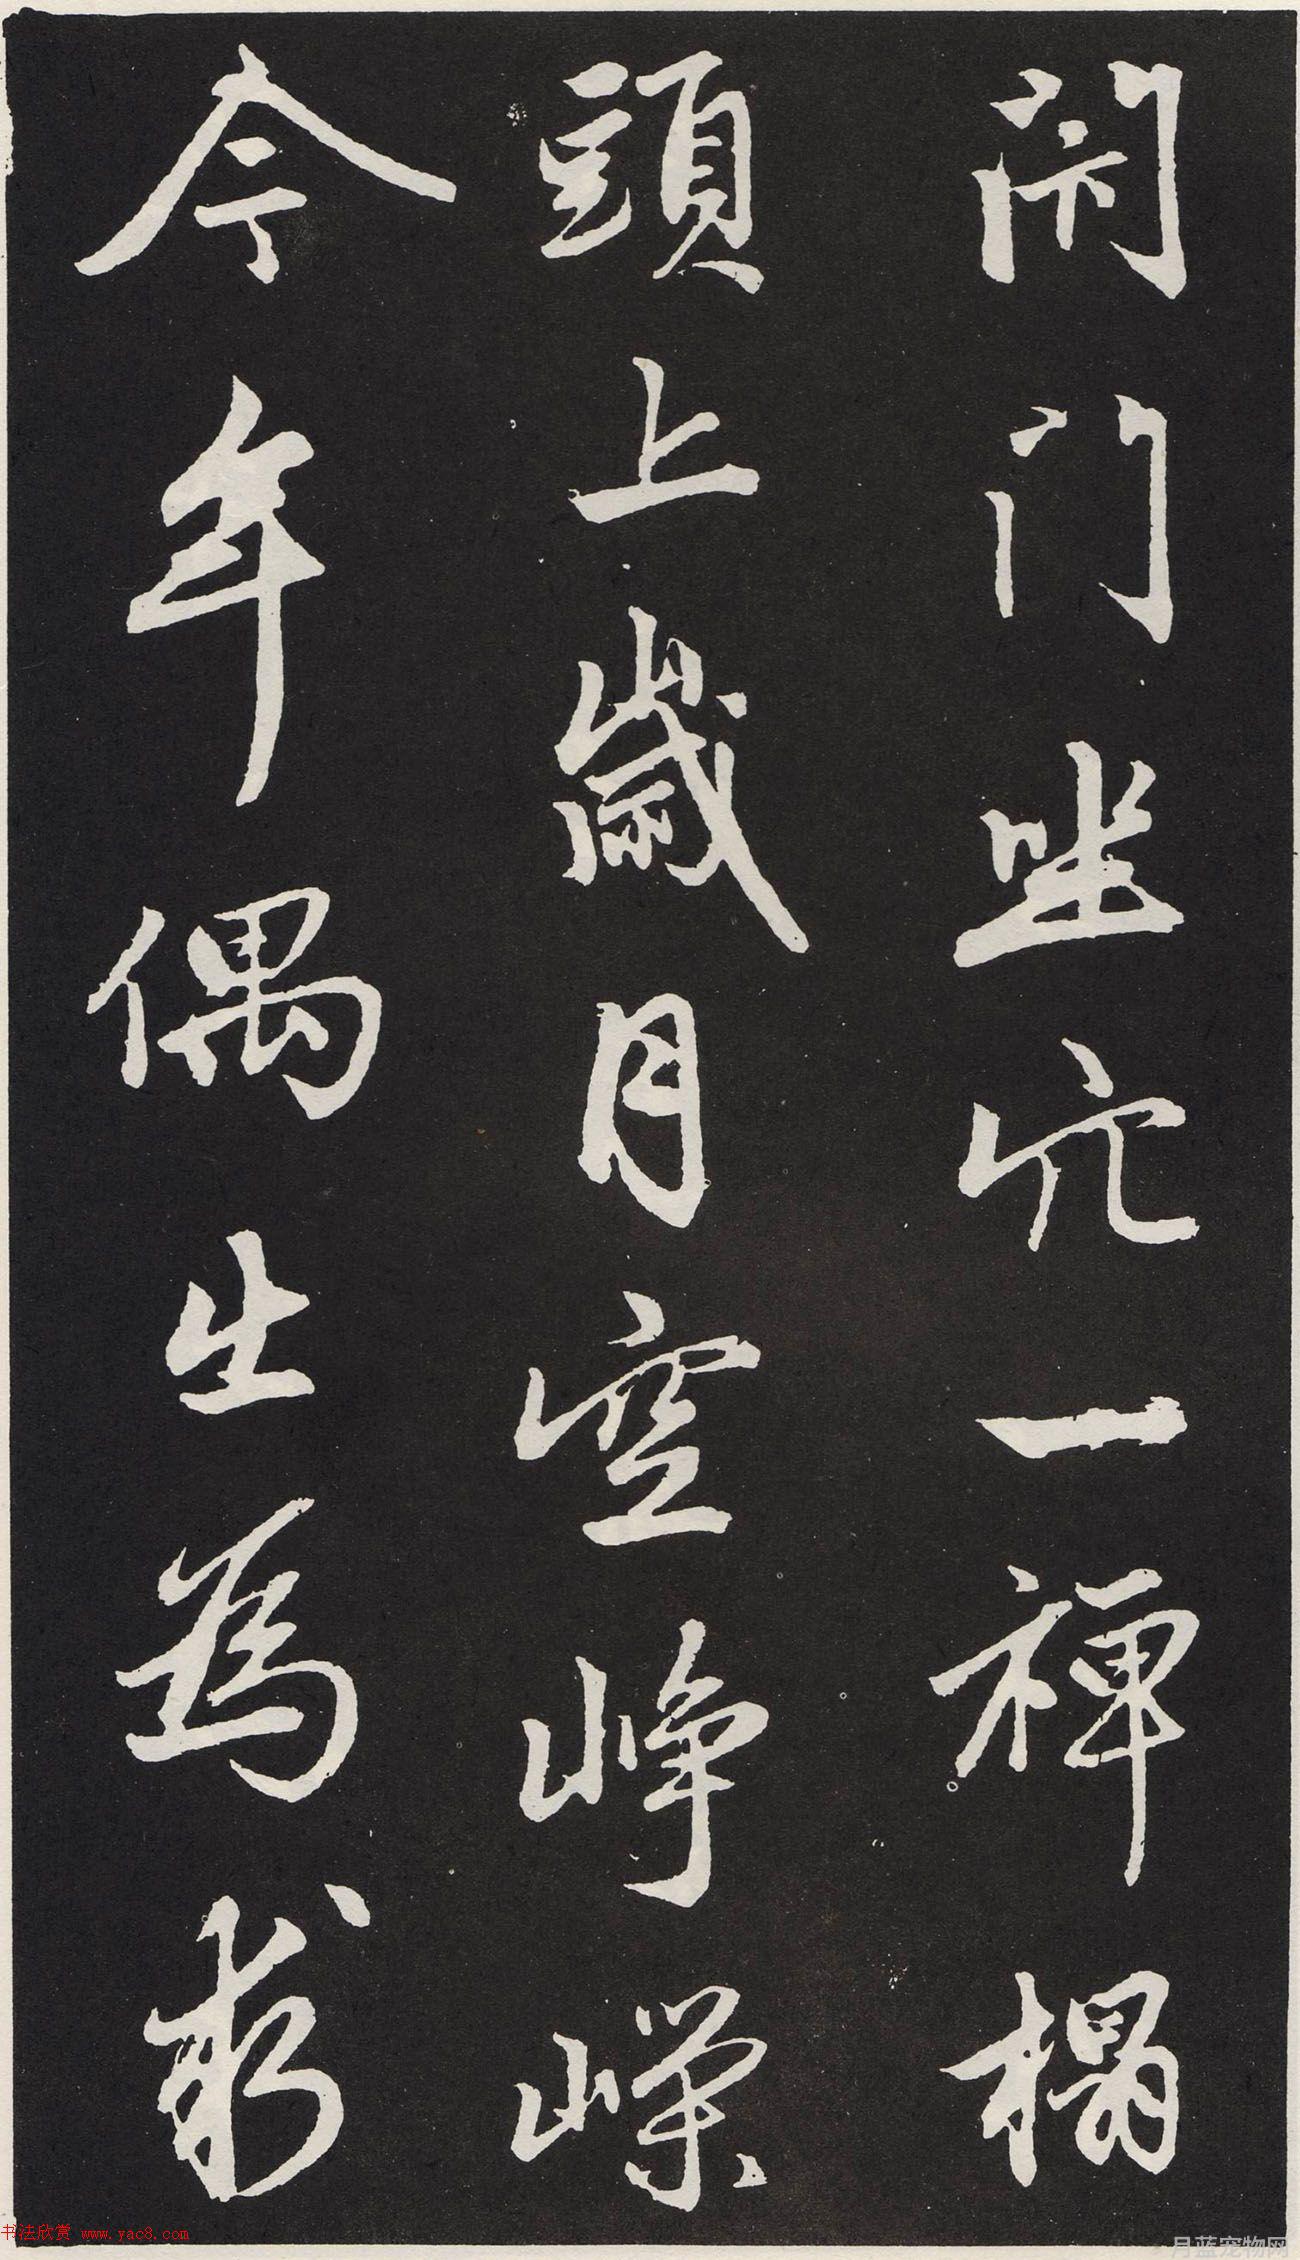 閉門坐穴一禪榻
頭上歲月空崢嶸
今年偶出為求
书法欣赏 www.yac8.com
月蓝宠物网